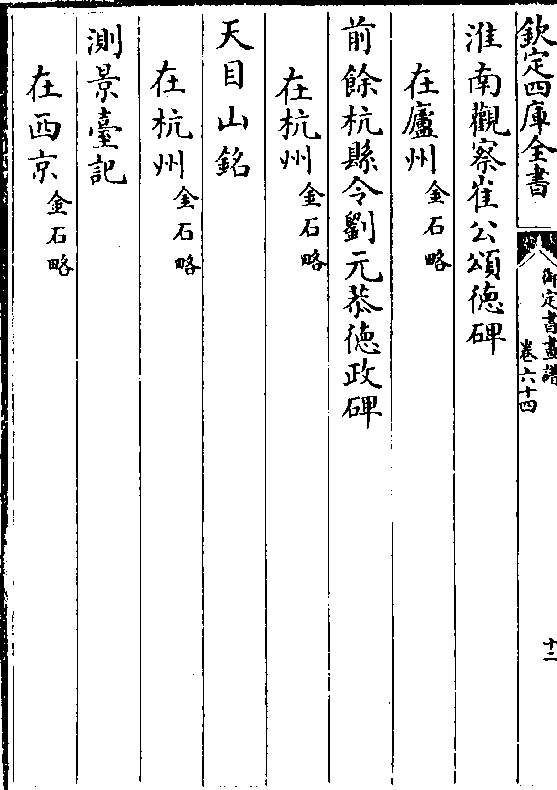 欽定四庫全書
御定書畫譜
卷六十四
十二
淮南觀察崔公頌徳碑
在廬州金石略
前餘杭縣令劉元恭徳政碑
在杭州金石略
天目山銘
在杭州金石略
測景臺記
在西京金石略